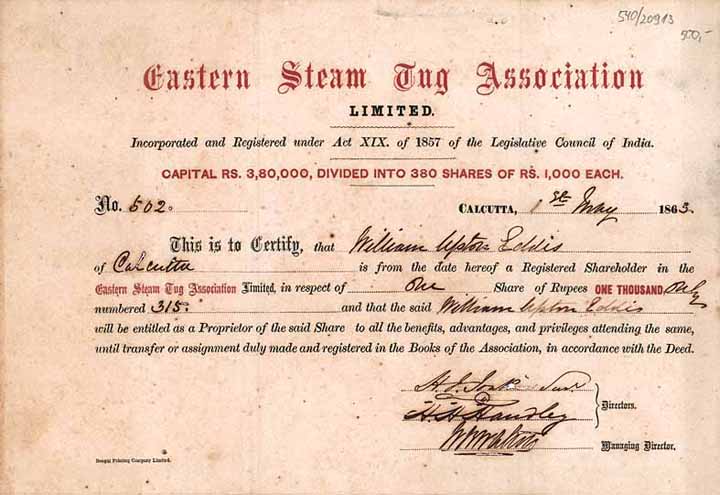 540/20913
500,-
Eastern Steam Tug Association
LIMITED.
Incorporated and Registered under Act XIX. of 1857 of the Legislative Council of India.
CAPITAL RS. 3,80,000, DIVIDED INTO 380 SHARES OF RS. 1,000 EACH.
No. 502. CALCUTTA, 1st May 1863.
This is to Certify, that William Upton Eddis
of Calcutta is from the date hereof a Registered Shareholder in the
Eastern Steam Tug Association Limited, in respect of One Share of Rupees ONE THOUSAND, Only
numbered 315. and that the said William Upton Eddis
will be entitled as a Proprietor of the said Share to all the benefits, advantages, and privileges attending the same,
until transfer or assignment duly made and registered in the Books of the Association, in accordance with the Deed.
Directors.
Managing Director.
Bengal Printing Company Limited.